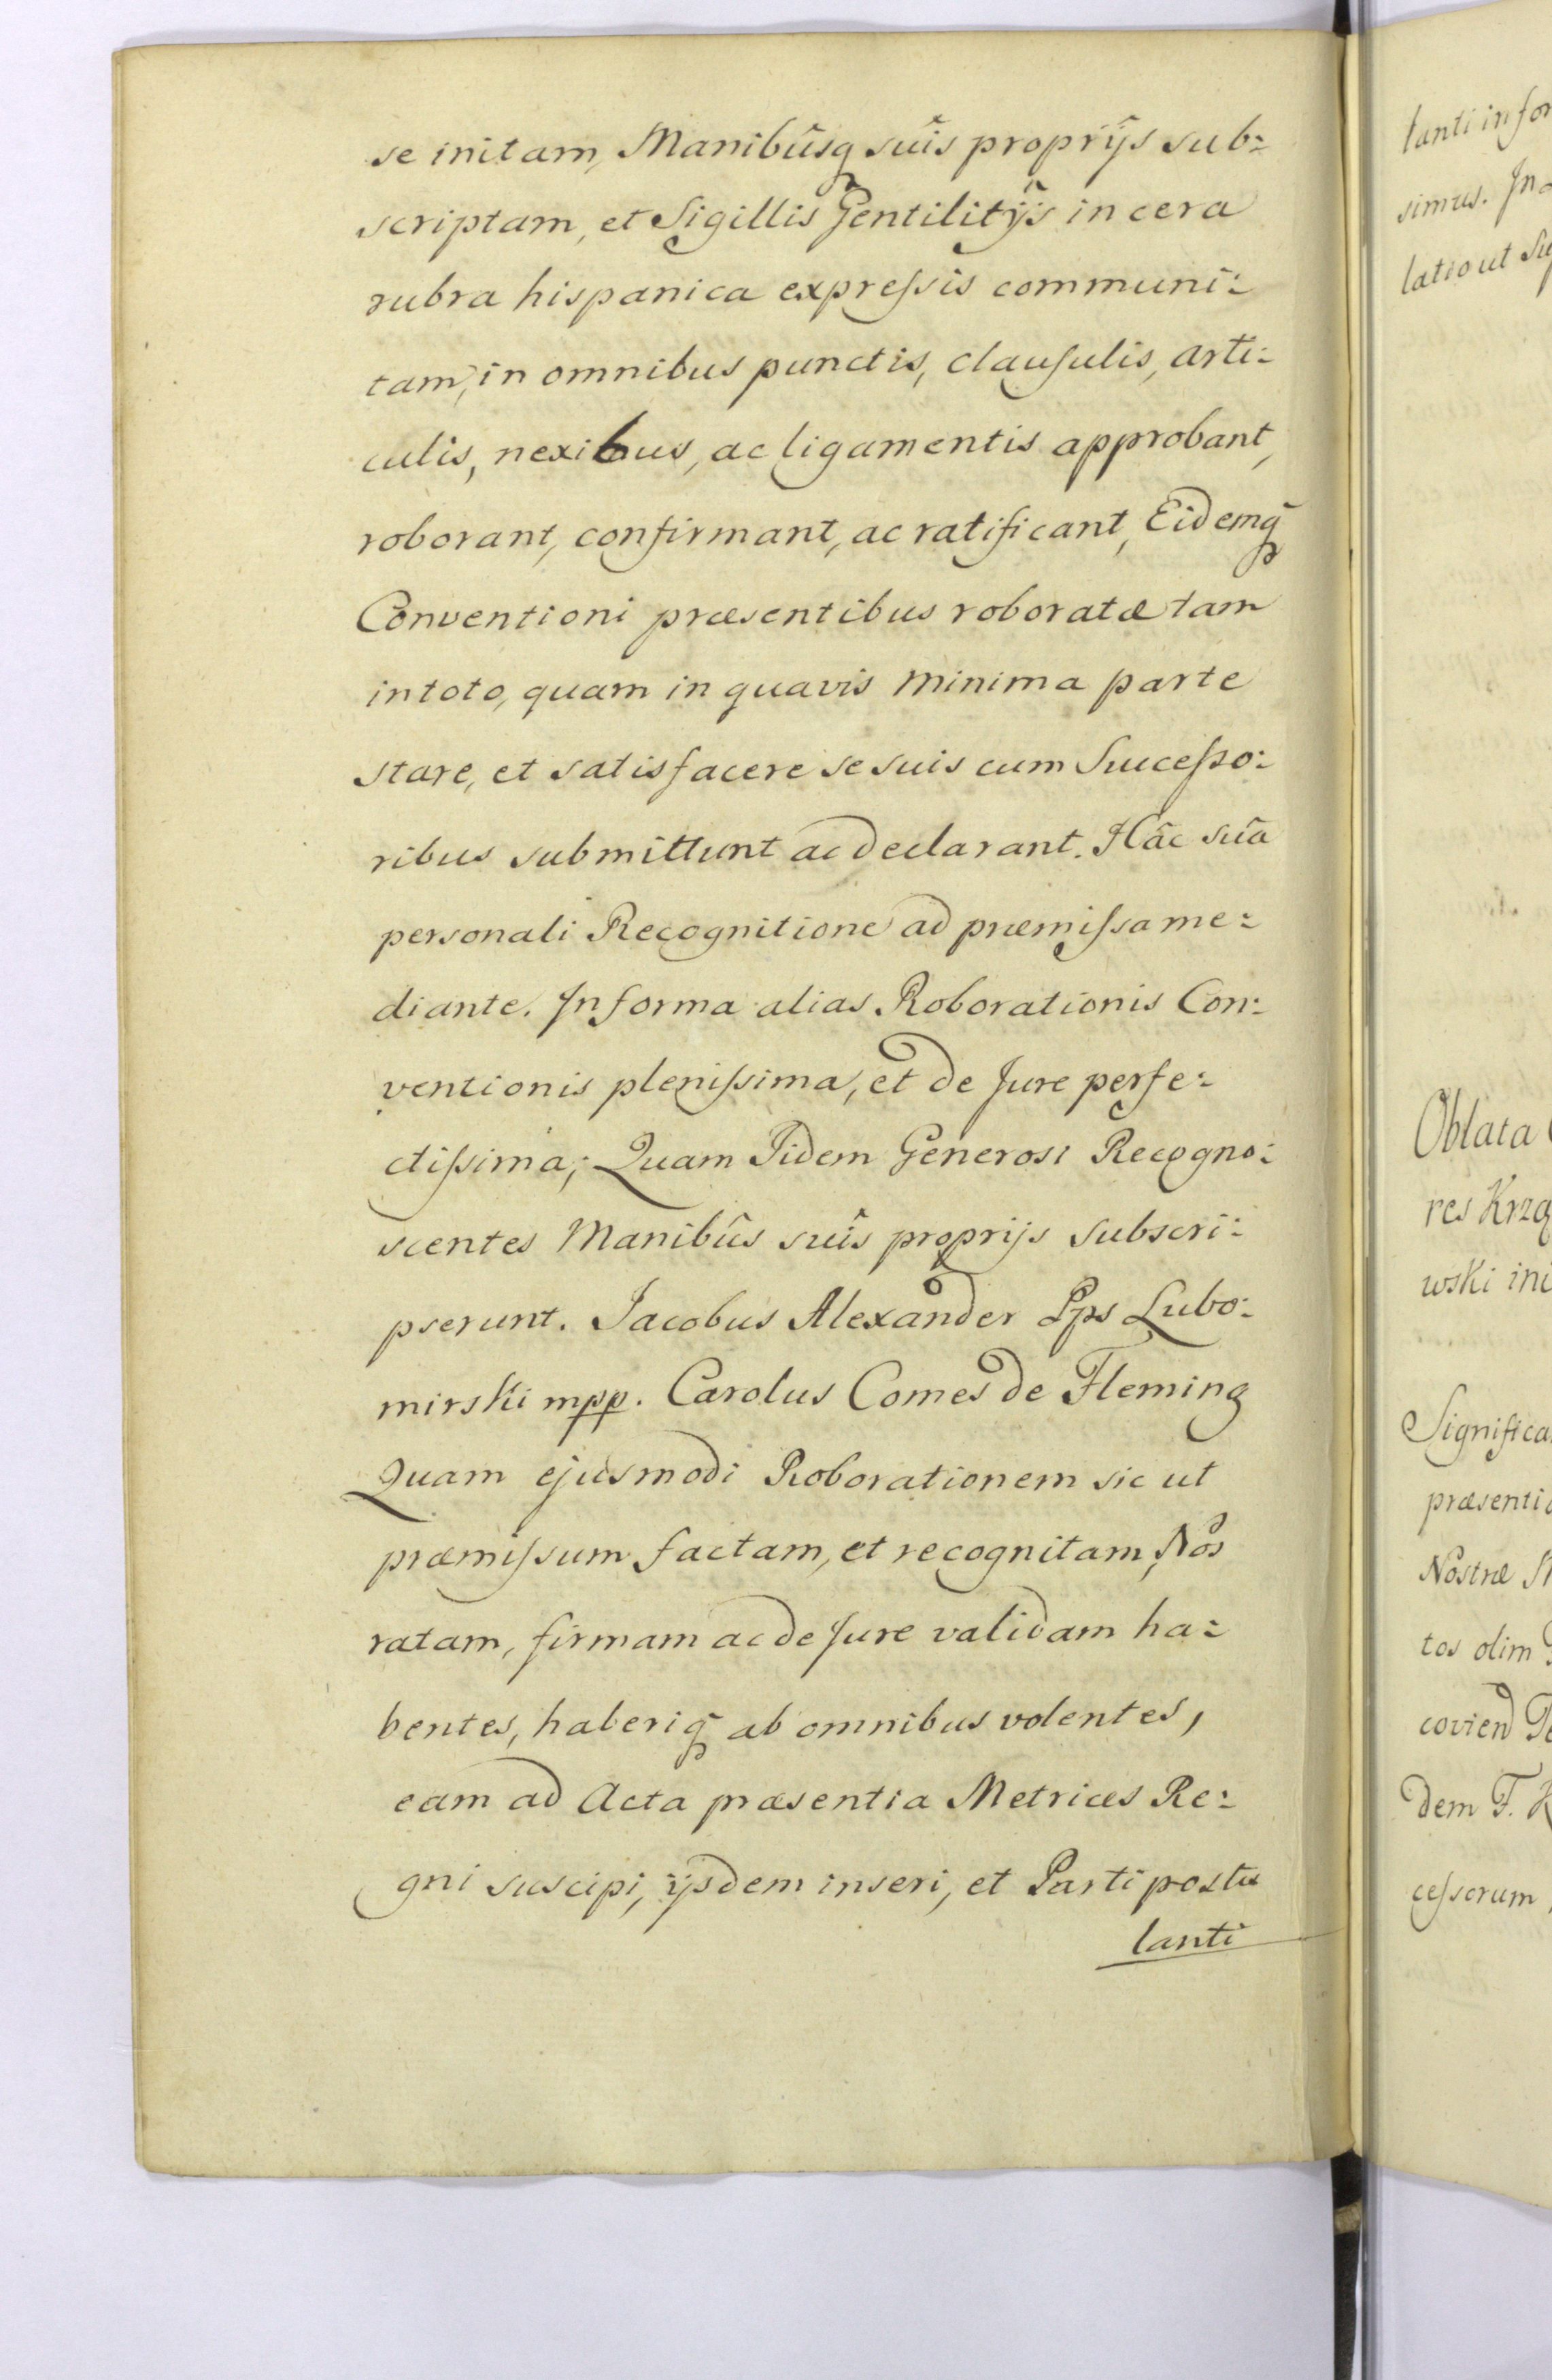 se initam, Manibûsq suîs proprijs sub=
scriptam, et Sigillis Gentilitijs in cera
rubra hispanica expreſsis communi=
tam, in omnibus punctis, clauſulis, arti=
culis, nexibus, ac ligamentis approbant,
roborant, confirmant, ac ratificant, Eidemq
Conventioni præsentibus roboratæ tam
in toto, quam in quavis minima parte
stare, et satisfacere se suis cum Succeſso=
ribus submittunt ac declarant. Hâc suâ
personali Recognitione ad præmiſsa me=
diante. In forma alias Roborationis Con=
ventionis pleniſsima, et de Jure perfe=
ctiſsima; Quam Iidem Generosi Recogno=
scentes Manibûs suîs proprijs subscri=
pserunt. Jacobus Alexander Pps Lubo=
mirski mpp. Carolus Comes de Fleming
Quam ejusmodi Roborationem sic ut
præmiſsum factam, et recognitam, Nos
ratam, firmam ac de Jure validam ha=
bentes, haberiq ab omnibus volentes,
eam ad Acta præsentia Metrices Re=
gni suscipi, ijsdem inseri, et Parti postu
lanti
lanti in for
simus. In
latio ut Su
Oblata
res Krzą
wski ini
Significa
præsenti
Nostræ
tos olim
covien
dem F. K
ceſsorum